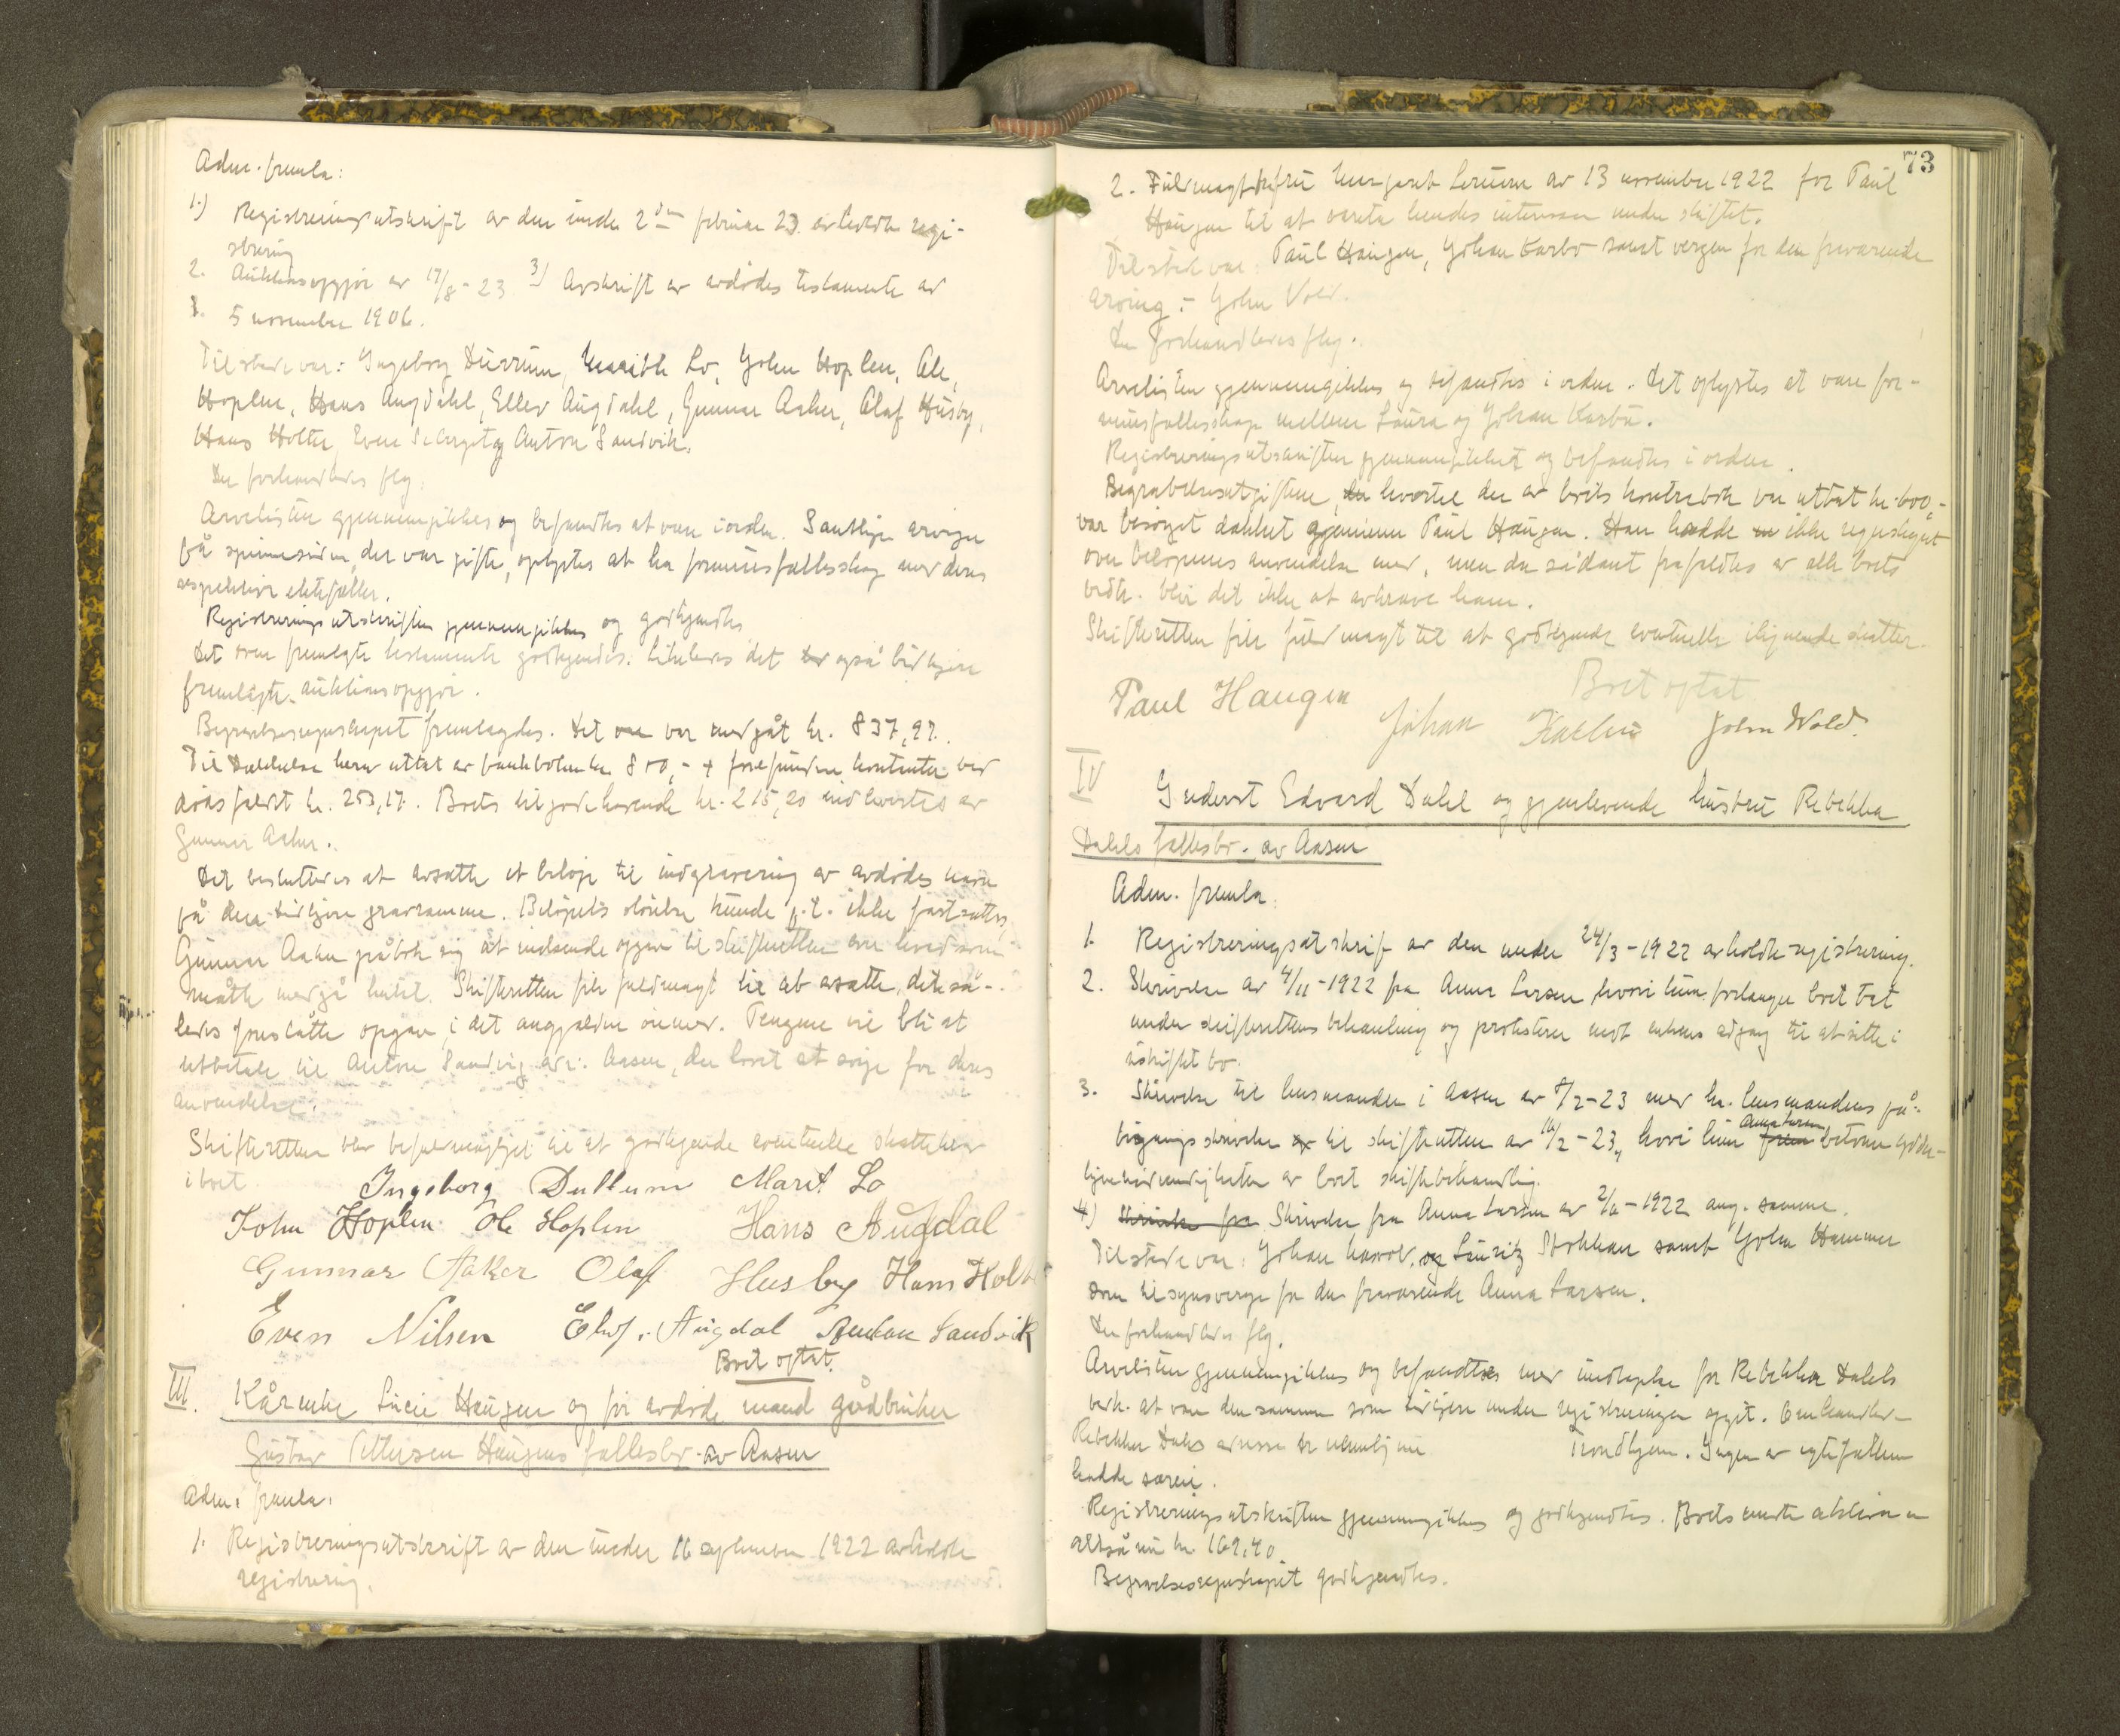 Adm. fremla:
1.) Registreringsutskrift av den under 2den februar 23 avholdte regi-
strering
2. Auktionsopgjør av 17/8-23 3) Avskrift av avdødes testamente av
3. 5 november 1906.
Tilstede var: Ingeborg Durrum, Marith Lo, John Hoplen, Ole
Hoplen, Hans Augdahl, Ellev Augdahl, Gunnar Aaker, Olaf Husby,
Hans Holte, Even og Anton Sandvik.
Der forhandledes flg.
Arvelisten gjennemgikkes og befandtes at være i orden. Samtlige arvinger
på spinnesiden, der var gifte, oplystes at ha formuesfællesskap med deres
respektive ektefæller.
Registreringsutskriften gjennemgikkes og godkjendtes
Det som fremlagte testamente godkjendes. Likeledes det også tidligere
fremlagte auktionsopgjør.
Begravelsesregnskapet fremlagdes. Det var medgåt kr. 837,97.
Til dækkelse herav uttat av bankboken kr. 800,- + forefundne kontanter ved
dødsfaldet kr. 253,17. Boets tilgodehavende kr. 215,20 indleveres av
Gunnar Aaker.
Det besluttedes at avsætte et beløp til indgravering av avdødes navn
på den tidligere gravramme. Beløpets størrelse kunde p.t. ikke fastsættes,
Gunnar Aaker påtok sig at indsende opgave til skifteretten over hvad som
måtte medgå hertil. Skifteretten fik fuldmagt til at avsætte det så-
ledes foreslåtte opgave i det angjældne øiemed. Pengene vil bli at
utbetale til Anton Sandvig adr: Aasen, der lovet at sørge for deres
anvendelse.
Skifteretten blev befuldmægtiget til at godkjende eventuelle skattekrav
i boet.
Ingeborg Dullum Marit Lo
John Hoplen Ole Hoplen Hans Augdal
Gunnar Aaker Olaf Husby Hans Holte
Even Nilsen Elev. Augdal Anton Sandvik
Boet optat.
III. Kårenke Lucie Haugen og før avdøde mand gårdbruker
Gustav Pettersen Haugens fællesbo av Aasen
Adm. fremla.
1. Registreringsutskrift av den under 16 september 1922 avholdte
registrering.
73
2. Fuldmagt fra fru Margaret av 13 november 1922 for Paul
Haugen til at vareta hendes interesser under skiftet.
Tilstede var: Paul Haugen, Johan Karbø samt vergen for den fraværende
arving :- John Vold.
Der forhandledes flg.
Arvelisten gjennemgikkes og befandtes i orden. Det oplystes at være for-
muesfællesskap mellem Laura og Johan Karbu.
Registreringsutskriften gjennemgikkes og befandtes i orden.
Begravelsesutgiftene, hvortil der av boets kontrabok var uttat kr. 600,-
var besørget dækket gjennem Paul Haugen. Han hadde ikke regnskapet
over beløpenes anvendelse med, men da sådant frafaldtes av alle boets
vedk. blir det ikke at avkræve ham.
Skifteretten fik fuldmagt til at godkjende eventuelle ilignende skatter.
Boet optat
Paul Haugen Johan Karbu John Wold.
IV Inderst Edvard Dahl og gjenlevende hustru Rebekka
Dahls fællesbo. av Aasen
Adm. fremla.
1. Registreringsutskrift av den under 24/3-1922 avholdte registrering.
2. Skrivelse av 4/11-1922 fra Anna Larsen hvori hun forlanger boet tat
under skifterettens behandling og protesterer mot enkens adgang til at sitte i
uskiftet bo.
3. Skrivelse til lensmanden i Aasen av 8/2-23 med hr. lensmandens på-
tegningsskrivelse til skifteretten av 16/2-23, hvori hun Anna Larsen betoner
nødvendigheten av boets skiftebehandling.
4) Skrivelse fra Skrivelse fra Anna Larsen av 2/11-1922 ang. samme.
Tilstede var: Johan og Lauritz Stokkan samt John Hammer
som tilsynsverge for den fraværende Anna Larsen.
Der forhandledes flg.
Arvelisten gjennemgikkes og befandtes med undtagelse for Rebekka Dahls
vedk. at være den samme som tidligere under registreringen opgit.
Rebekka Dahls adresse er nemlig nu Trondhjem. Ingen av egtefællene
hadde særeie.
Registreringsutskriften gjennemgikkes og godkjendtes. Boets aktiva er
altså nu kr. 169,40
Begravelsesregnskapet godkjendtes.